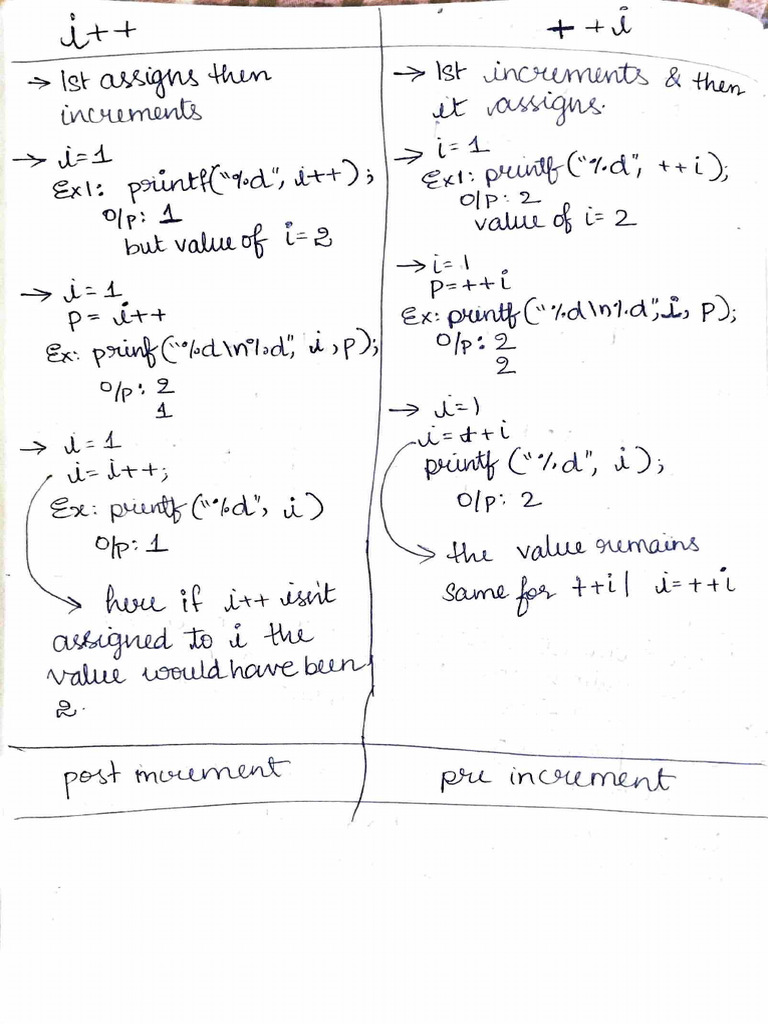 i++
→ 1st assigns then
increments
→ i=1
Ex1: printf("%d", i++);
O/p: 1
but value of i=2
→ i=1
p = i++
Ex: prinf("%d\n%d", i, p);
O/p: 2
1
→ i=1
i=i++;
Ex: printf("%d", i)
O/p: 1
→ here if i++ isn't
assigned to i the
value would have been
2.
post increment
++i
→ 1st increments & then
it assigns.
→ i=1
Ex1: printf("%d", ++i);
O/p: 2
value of i=2
→ i=1
P=++i
Ex: printf("%d\n%d", i, P);
O/p: 2
2
→ i=1
i=++i
printf("%d", i);
O/p: 2
→ the value remains
same for ++i| i=++i
pre increment